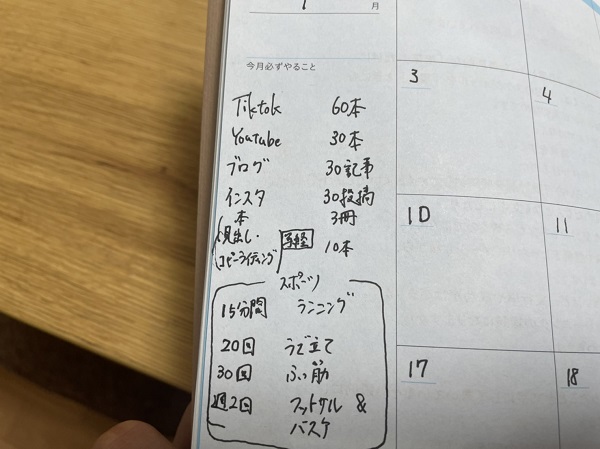 1 月
今月必ずやること
3
4
Tiktok 60本
Youtube 30本
ブログ 30記事
インスタ 30投稿
本 3冊
10
11
(見出し・
コピーライティング) 写経 10本
スポーツ
15分間 ランニング
20回 うで立て
30回 ふっ筋
17
18
週2回 フットサル &
バスケ